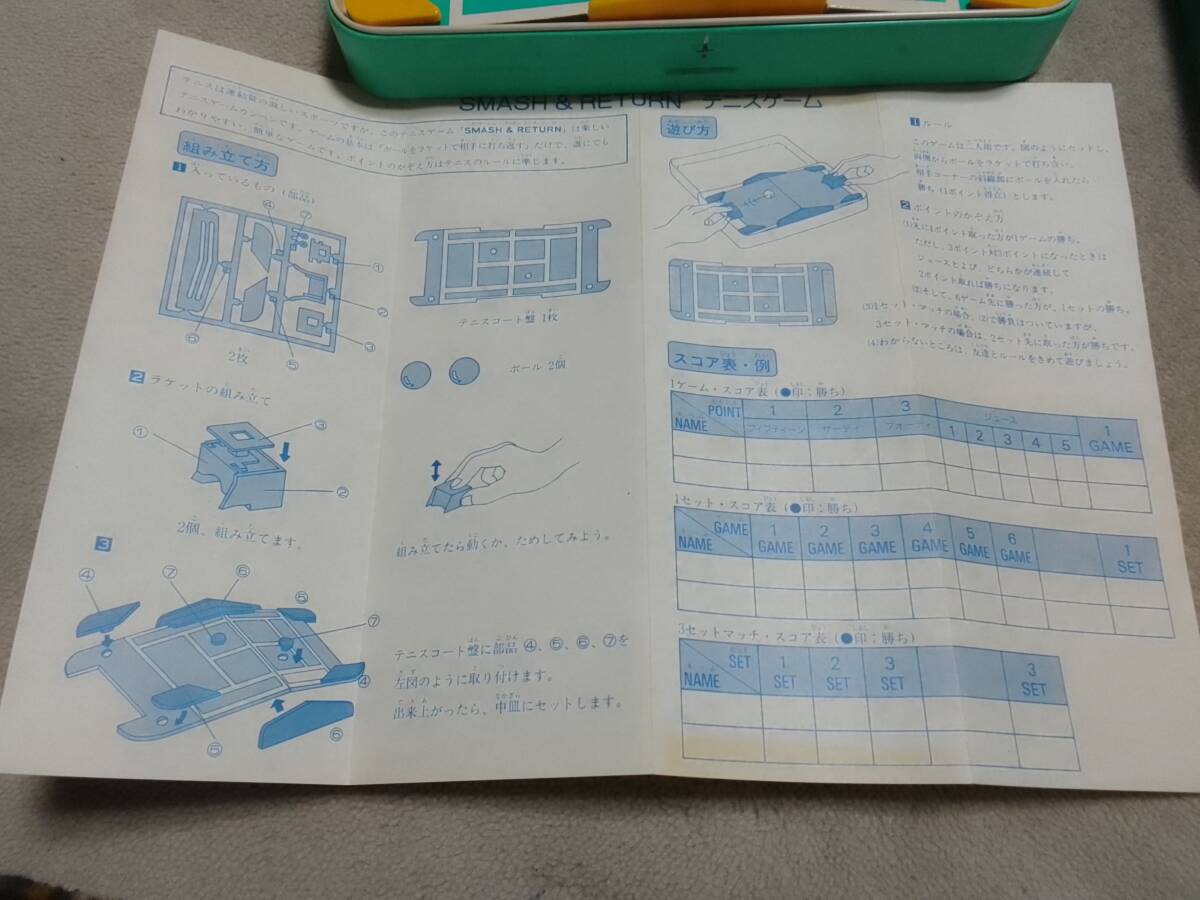 SMASH & RETURN テニスゲーム
テニスは運動量の激しいスポーツですが、このテニスゲーム「SMASH & RETURN」は楽しい
テニスゲームウンペンです。ゲームの基本は「ボールをラケットで相手に打ち返す」だけで、誰にでも
わかりやすい、簡単なゲームです。ポイントのかぞえ方はテニスのルールに準じます。
組み立て方
1 入っているもの(部品)
④
⑦
①
②
③
⑤
⑥
2枚
テニスコート盤 1枚
ボール 2個
2 ラケットの組み立て
①
③
②
2個、組み立てます。
組み立てたら動くか、ためしてみよう。
3
④
⑦
⑥
⑤
⑦
④
⑤
⑥
テニスコート盤に部品④、⑤、⑥、⑦を
左図のように取り付けます。
出来上がったら、中皿にセットします。
遊び方
1 ルール
このゲームは二人用です。図のようにセットし、
両側からボールをラケットで打ち合い、
相手コーナーの斜線部にボールを入れたら
勝ち(1ポイント得点)とします。
2 ポイントのかぞえ方
(1)先に4ポイント取った方が1ゲームの勝ち。
ただし、3ポイント対3ポイントになったときは
ジュースとよび、どちらかが連続して
2ポイント取れば勝ちになります。
(2)そして、6ゲーム先に勝った方が、1セットの勝ち。
(3)1セット・マッチの場合、(2)で勝負はついていますが、
3セット・マッチの場合は、2セット先に取った方が勝ちです。
(4)わからないところは、友達とルールをきめて遊びましょう。
スコア表・例
1ゲーム・スコア表(●印:勝ち)
POINT
NAME
1 2 3 ジュース 1
フィフティーン サーティ フォーティ 1 2 3 4 5 GAME
1セット・スコア表(●印:勝ち)
GAME
NAME
1 2 3 4 5 6 1
GAME GAME GAME GAME GAME GAME SET
3セットマッチ・スコア表(●印:勝ち)
SET
NAME
1 2 3 3
SET SET SET SET